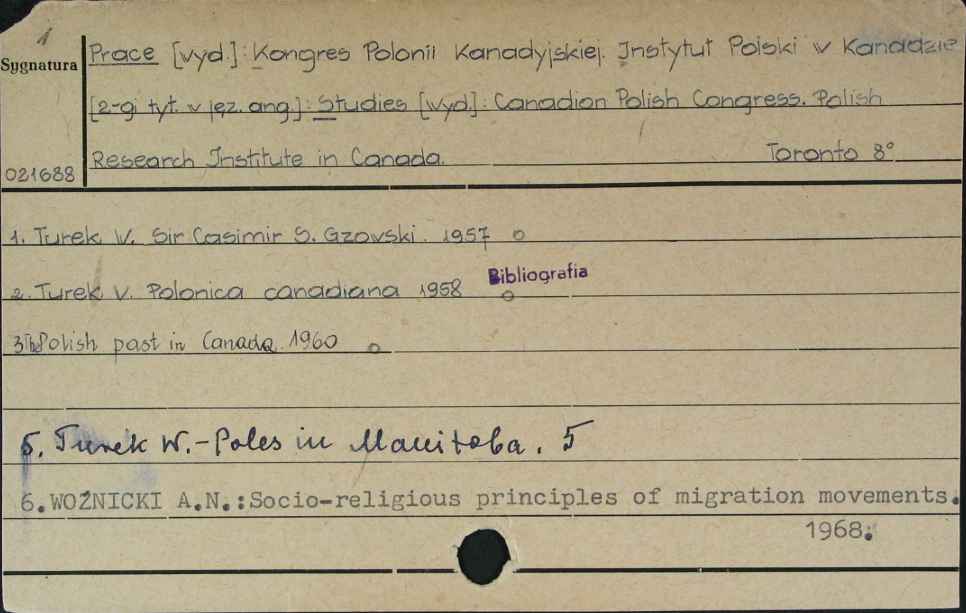 1
Sygnatura
Prace [wyd.]: Kongres Polonii Kanadyjskiej. Instytut Polski w Kanadzie
[2-gi tyt. w jęz. ang.]: Studies [wyd.]: Canadian Polish Congress. Polish
Research Institute in Canada. Toronto 8°
021688
1. Turek W. Sir Casimir S. Gzowski. 1957
Bibliografia
2. Turek V. Polonica canadiana 1958
3 The Polish past in Canada. 1960
5. Turek W. - Poles in Manitoba. 5
6. WOŹNICKI A.N.: Socio-religious principles of migration movements.
1968.